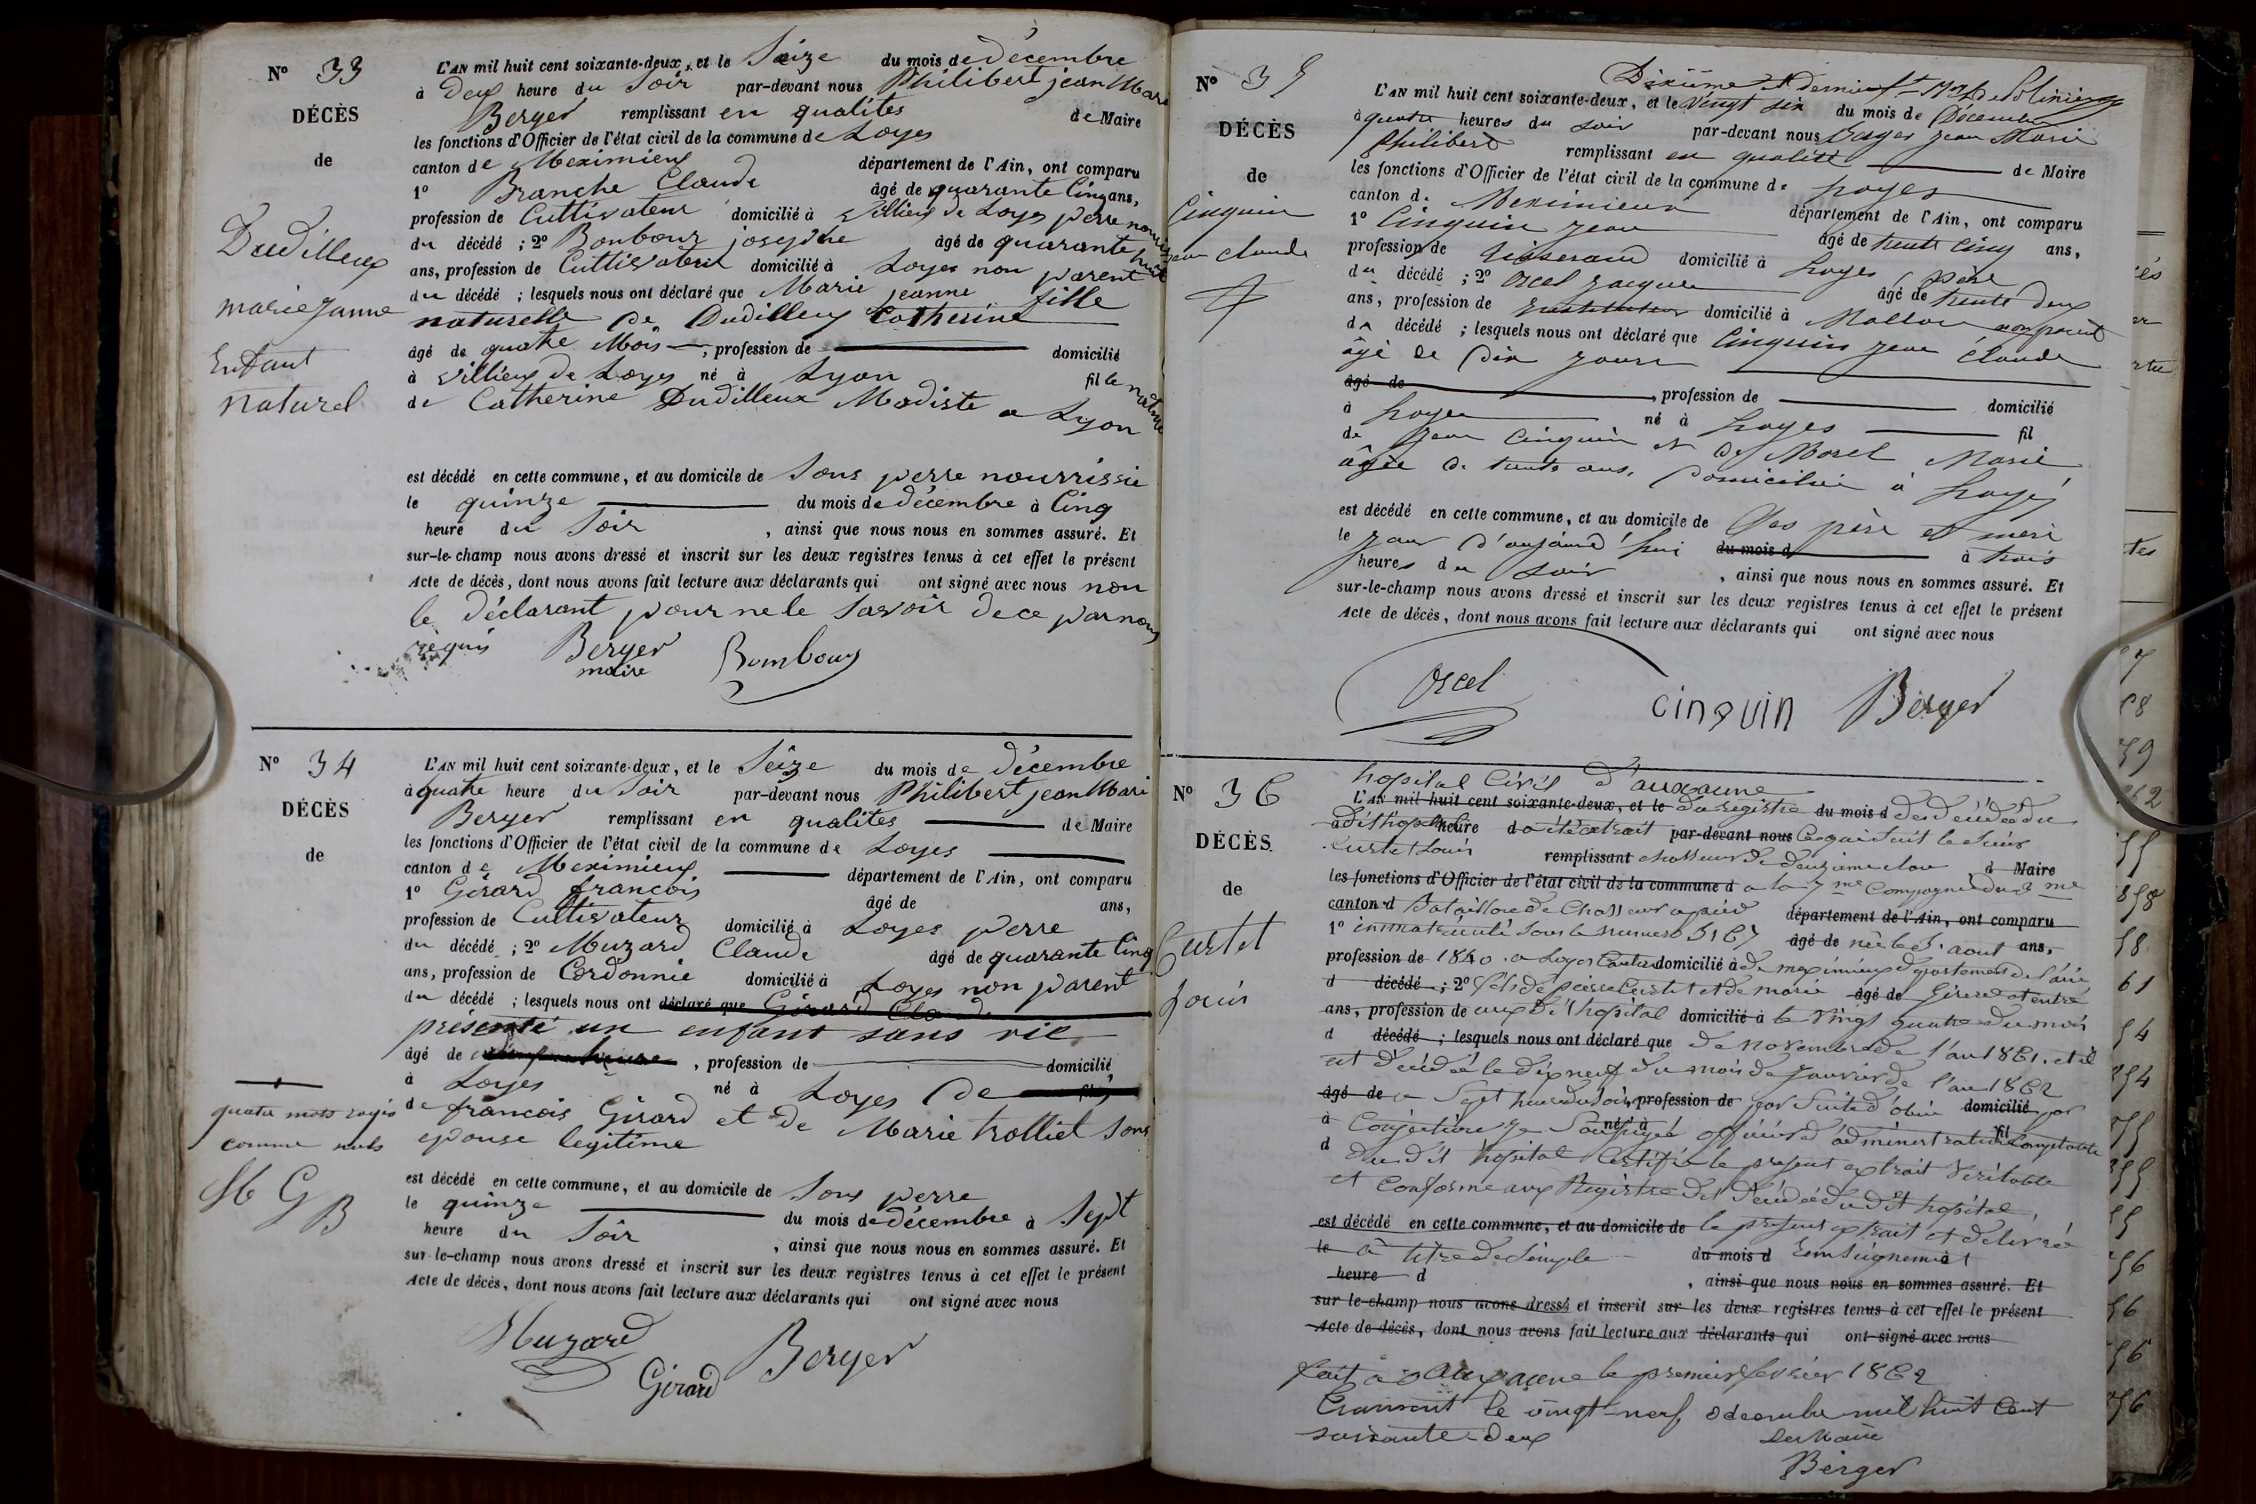 N° 33
DÉCÈS
de
Dudilleux
marie Janne
Enfant
naturel
L'AN mil huit cent soixante-deux, et le Seize du mois de décembre
à deux heure du Soir par-devant nous Philibert jean Marie
Berger remplissant en qualites de Maire
les fonctions d'Officier de l'état civil de la commune de Loyes
canton de Meximieux département de l'Ain, ont comparu
1° Branche Claude âgé de quarante Cinq ans,
profession de Cultivateur domicilié à Villieux de Loyes perre nourri
du décédé ; 2° Bonbour josephe âgé de quarante huit
ans, profession de Cultivateur domicilié à Loyes non parent
du décédé ; lesquels nous ont déclaré que Marie jeanne fille
naturelle de Dudilleux Catherine
âgé de quatre Mois, profession de domicilié
à Villieux de Loyes né à Lyon fil le naturel
de Catherine Dudilleux Modiste a Lyon
est décédé en cette commune, et au domicile de Sons perre nourrissié
le quinze du mois de décembre à Cinq
heure du Soir, ainsi que nous nous en sommes assuré. Et
sur-le-champ nous avons dressé et inscrit sur les deux registres tenus à cet effet le présent
Acte de décès, dont nous avons fait lecture aux déclarants qui ont signé avec nous non
le déclarant pour ne le savoir de ce par nous
requis Berger Bombour
maire
N° 34
DÉCÈS
de
quatre mots rayés
comme nuls
M G B
L'AN mil huit cent soixante-deux, et le Seize du mois de décembre
à quatre heure du Soir par-devant nous Philibert jean Mari
Berger remplissant en qualites de Maire
les fonctions d'Officier de l'état civil de la commune de Loyes
canton de Meximieux département de l'Ain, ont comparu
1° Gérard francois âgé de ans,
profession de Cultivateur domicilié à Loyes perre
du décédé ; 2° Muzard Claude âgé de quarante Cinq
ans, profession de Cordonnie domicilié à Loyes non parent
du décédé ; lesquels nous ont déclaré que Gérard
présenté un enfant sans vie
âgé de , profession de domicilié
à Loyes né à Loyes de
de francois Girard et de Marie trolliet Sons
epouse legitime
est décédé en cette commune, et au domicile de Sons perre
le quinze du mois de décembre à Sept
heure du Soir, ainsi que nous nous en sommes assuré. Et
sur-le-champ nous avons dressé et inscrit sur les deux registres tenus à cet effet le présent
Acte de décès, dont nous avons fait lecture aux déclarants qui ont signé avec nous
Muzard Berger
Girard
N° 35
DÉCÈS
de
Cinquin
jean claude
Dixième et dernier
L'AN mil huit cent soixante-deux, et le vingt six du mois de Décembre
à quatre heures du soir par-devant nous Berger Jean Marie
Philibert remplissant en qualité de Maire
les fonctions d'Officier de l'état civil de la commune de Loyes
canton d. Meximieux département de l'Ain, ont comparu
1° Cinquin Jean âgé de trente cinq ans,
profession de tisserand domicilié à Loyes père
du décédé ; 2° Orcel Jacques âgé de trente deux
ans, profession de Instituteur domicilié à Mollon non parent
du décédé ; lesquels nous ont déclaré que Cinquin Jean Claude
âgé de dix jours
âgé de , profession de domicilié
à Loyes né à Loyes fil
de Jean Cinquin et de Morel Marie
âgée de trente ans, domiciliée à Loyes
est décédé en cette commune, et au domicile de Ses père et mère
le jour d'aujourd'hui du mois d à trois
heures du soir, ainsi que nous nous en sommes assuré. Et
sur-le-champ nous avons dressé et inscrit sur les deux registres tenus à cet effet le présent
Acte de décès, dont nous avons fait lecture aux déclarants qui ont signé avec nous
Orcel cinquin Berger
N° 36
DÉCÈS
de
Curtet
Louis
hopital Civil d'auxonne
L'AN mil huit cent soixante-deux, et le du registre du mois d des décédés du
à dit hopital heure d a été extrait par-devant nous ce qui suit le Sieur
Curtet Louis remplissant chasseur de deuxième classe d Maire
les fonctions d'Officier de l'état civil de la commune d a la 7me Compagnie du 3me
canton d Bataillon de Chasseurs a pied département de l'Ain, ont comparu
1° immatriculé sous le numero 5167 âgé de né le 5 aout ans,
profession de 1840 a Loyes Canton domicilié à de meximieux departement de l'ain
d décédé ; 2° fils de pierre Curtet et de marie âgé de Girard et entré
ans, profession de aux dit hopital domicilié à le vingt quatre du mois
d décédé ; lesquels nous ont déclaré que de novembre de l'an 1861. et il
est décédé le dix neuf du mois de Janvier de l'an 1862
âgé de a Sept heure du soir, profession de par Suite d'obié domicilié par
à Conjection né à Soussigné officier d'administration fil Comptable
d du dit hopital Certifié le present extrait Veritable
et Conforme aux Registre des décédé du dit hopital,
est décédé en cette commune, et au domicile de le present extrait et delivré
le a titre de Simple du mois d renseignement à
heure d , ainsi que nous nous en sommes assuré. Et
sur-le-champ nous avons dressé et inscrit sur les deux registres tenus à cet effet le présent
Acte de décès, dont nous avons fait lecture aux déclarants qui ont signé avec nous
fait a auxonne le premier fevrier 1862
Transcrit le vingt-neuf decembre mil huit Cent
soixante-deux Le Maire
Berger